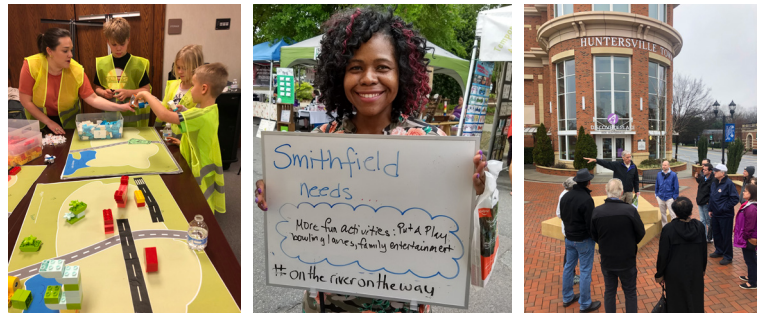 Smithfield
needs...
More fun activities: Put & Play,
bowling lanes, family entertainment
#on the river on the way
HUNTERSVILLE TOWN
DISCOVERY PLACE